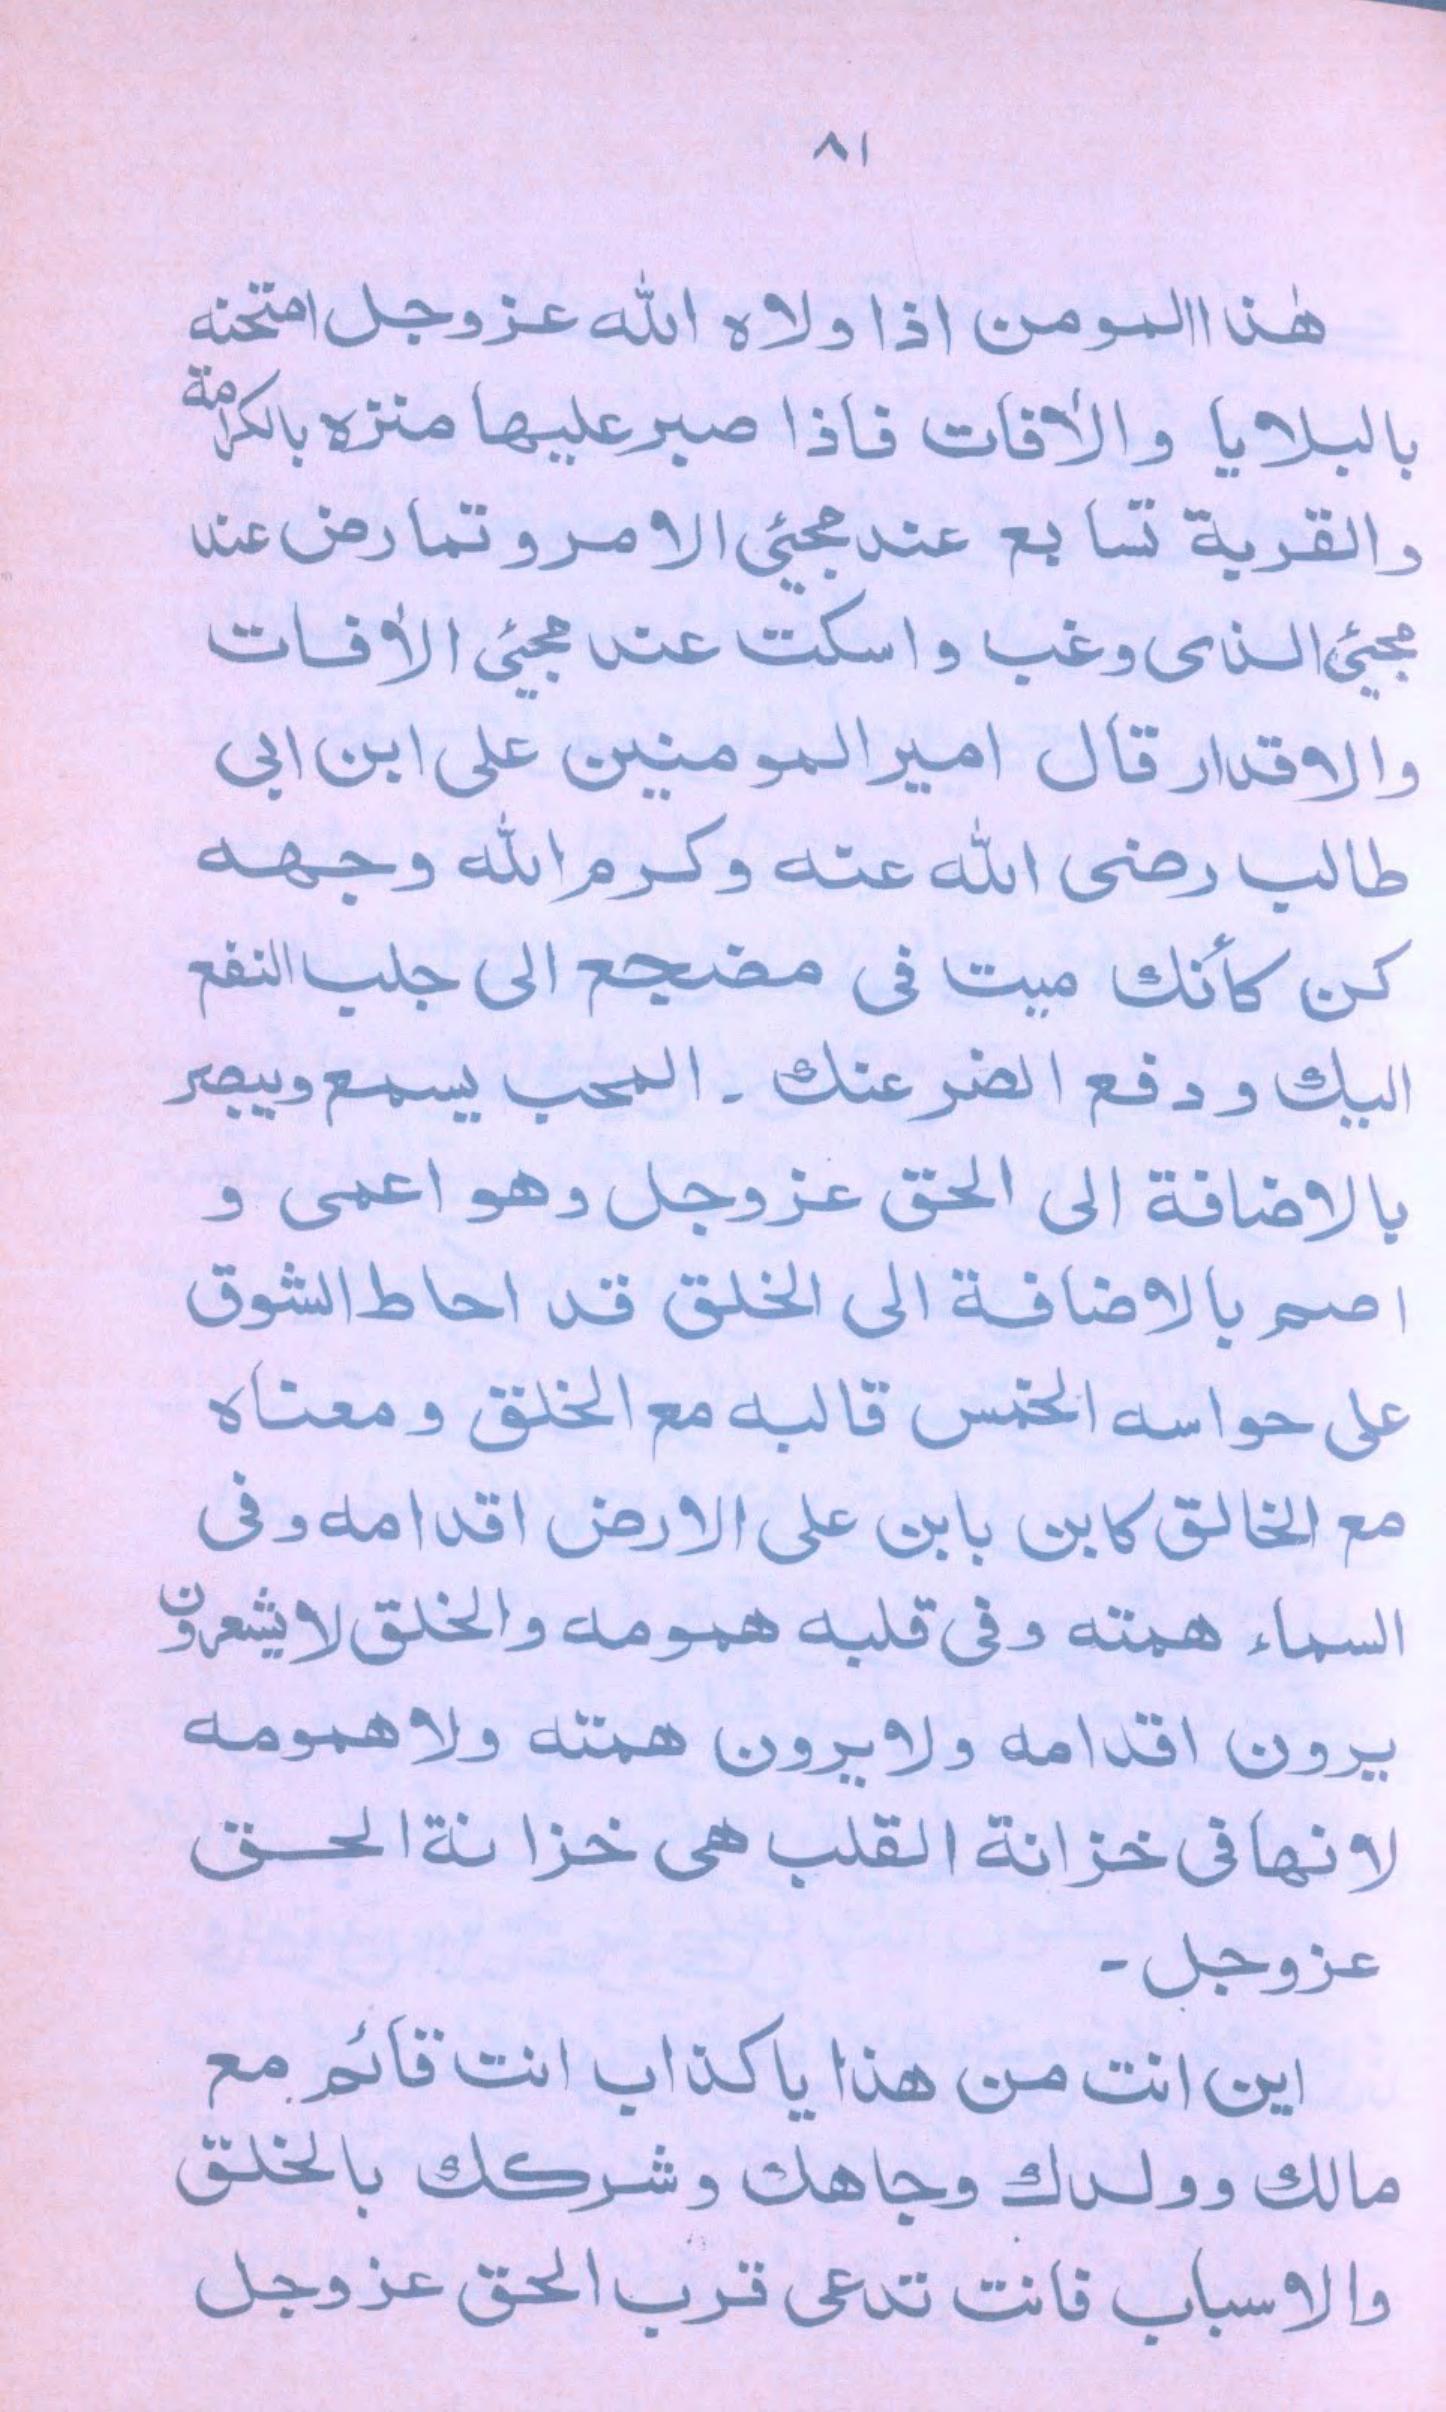 ٨١
هٰذا المومن اذا ولاه الله عزوجل امتحنه
بالبلايا والاٰفات فاذا صبر عليها منزه بالكرامة
والقربة تسا بع عند مجيئ الامر وتمارض عند
مجيئ الذى وغب واسكت عند مجيئ الاٰفات
والاقدار قال امير المومنين على ابن ابى
طالب رضى الله عنه وكرم الله وجهه
كن كأنك ميت فى مضجع الى جلب النفع
اليك ودفع الضر عنك ۔ المحب يسمع ويبصر
بالاضافة الى الحق عزوجل وهو اعمى و
اصم بالاضافة الى الخلق قد احاط الشوق
على حواسه الخمس قالبه مع الخلق ومعناه
مع الخالق كابن بابن على الارض اقدامه وفى
السماء همته وفى قلبه همومه والخلق لا يشعرون
يرون اقدامه ولا يرون همته ولا همومه
لانها فى خزانة القلب هى خزانة الحق
عزوجل ۔
اين انت من هذا يا كذاب انت قائم مع
مالك وولدك وجاهك وشركك بالخلق
والاسباب فانت تدعى قرب الحق عزوجل